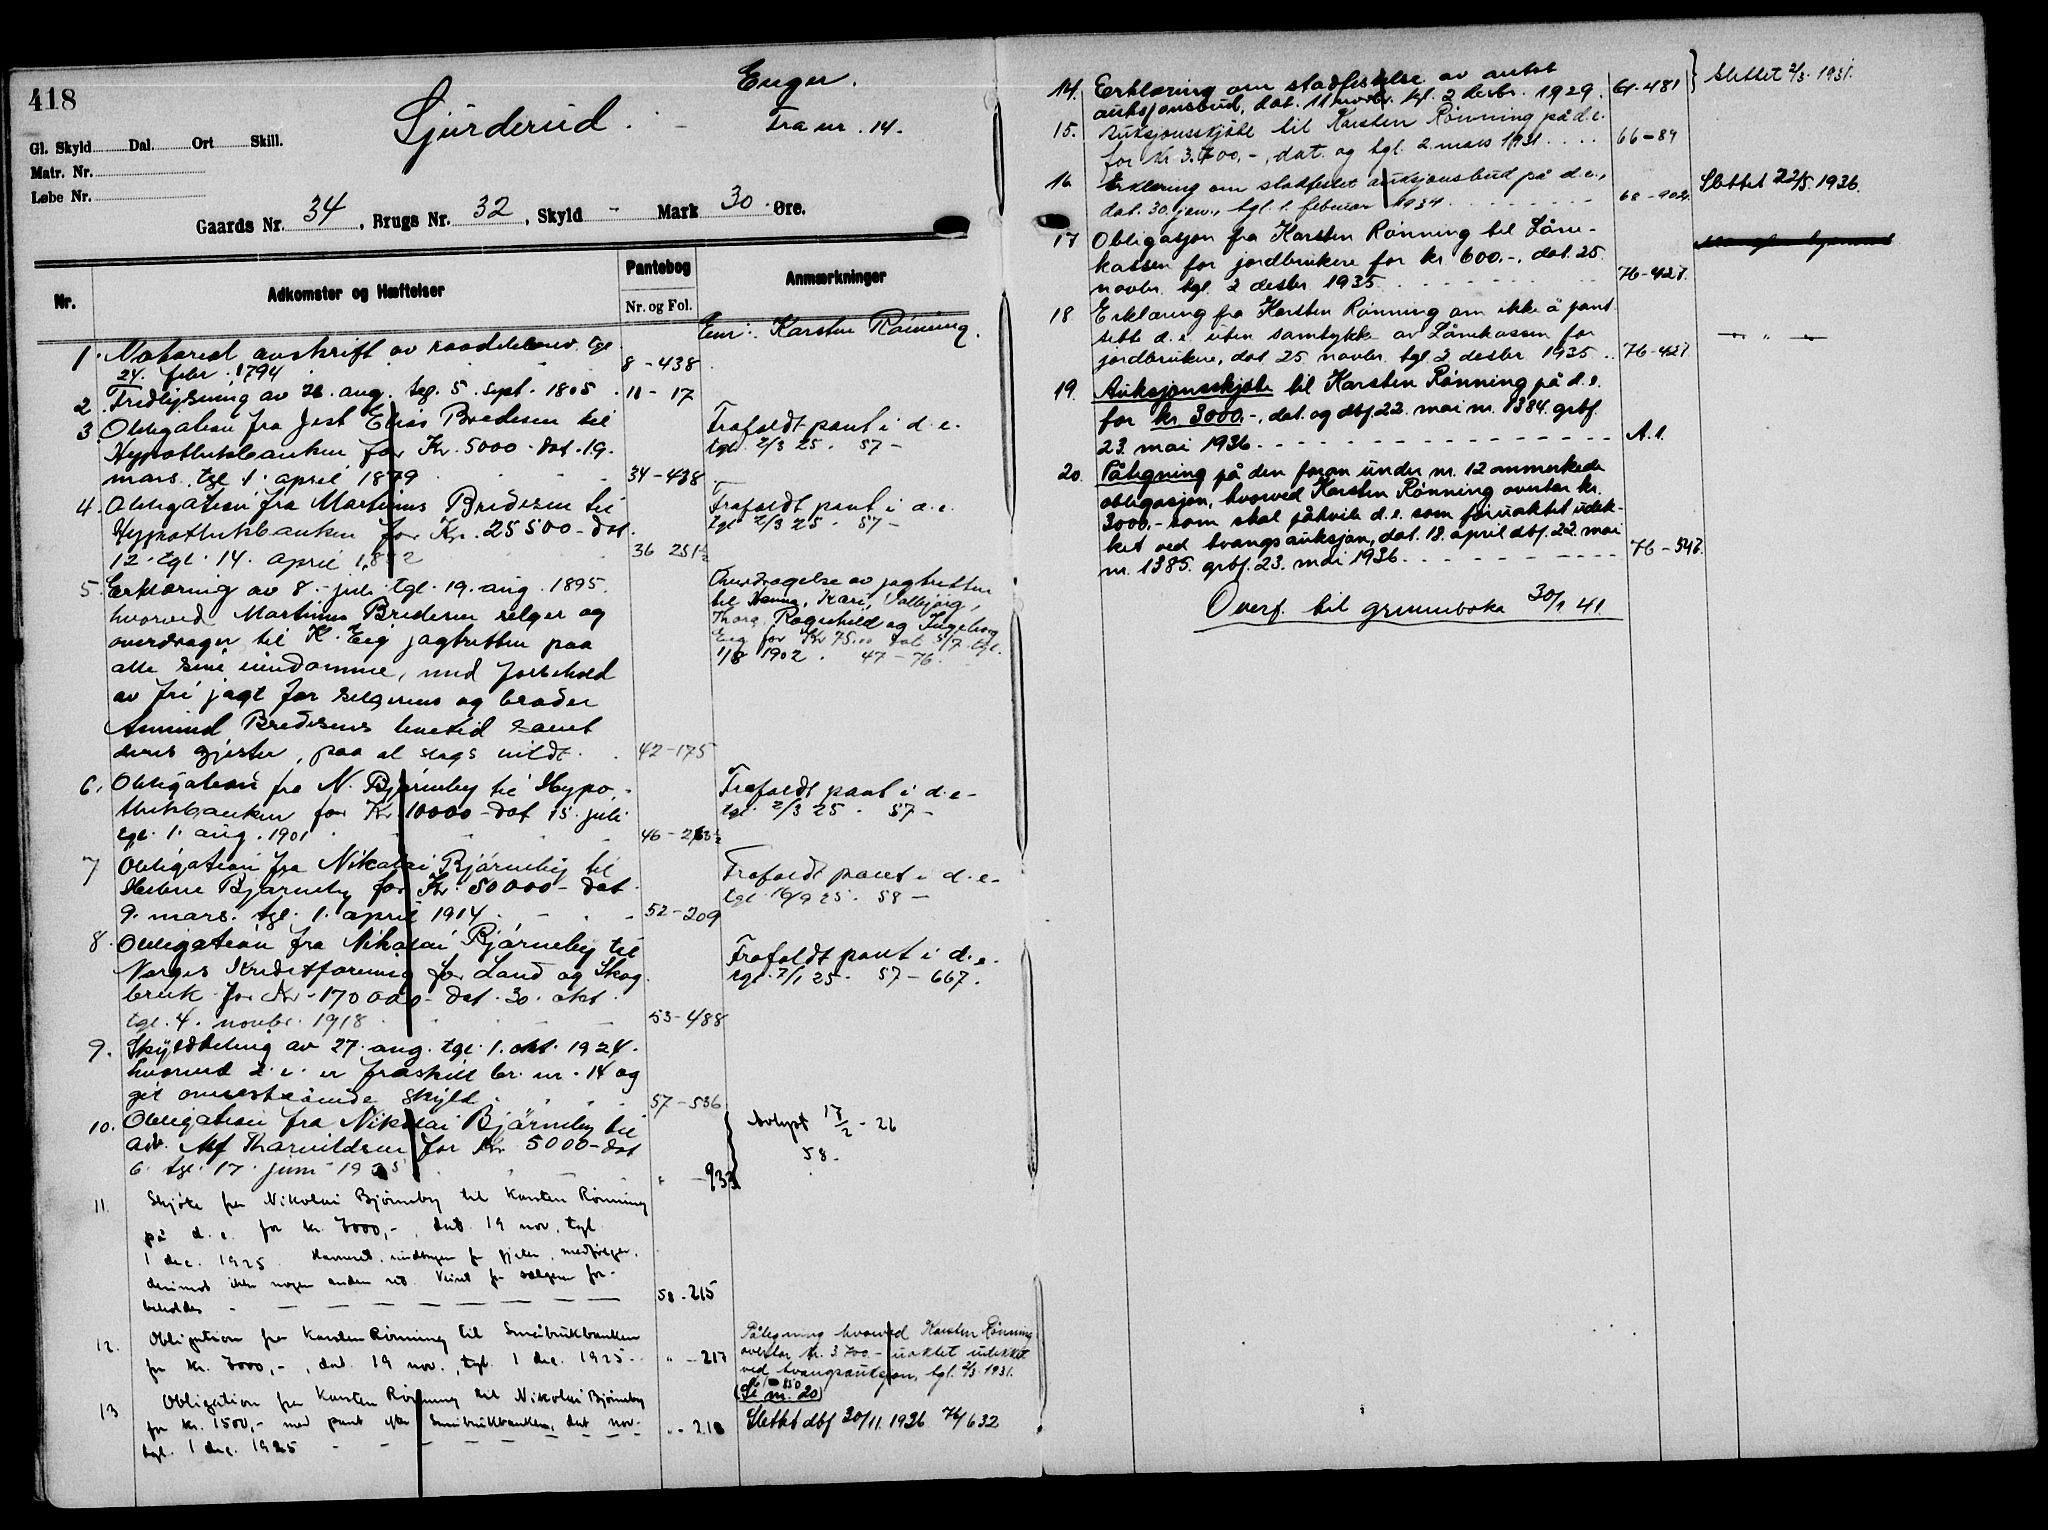 418
Sjurderud.
Enger.
Fra nr. 14.
Gl. Skyld Dal. Ort Skill.
Matr. Nr.
Løbe Nr.
Gaards Nr. 34, Brugs Nr. 32, Skyld - Mark 30 Øre.
Nr.
Adkomster og Hæftelser
Pantebog
Nr. og Fol.
Anmærkninger
Eier: Karsten Rønning.
1. Notarial avskrift av raadelsbrev tgl
24. febr. 1794 8-438
2. Fredlysning av 26. aug. tgl. 5. sept. 1805. 11-17
3. Obligation fra Jost Elias Bredesen til
Hypothekbanken for Kr. 5000 - dat. 19.
mars. tgl 1. april 1879 34-438
Frafaldt pant i d.e.
tgl. 2/3 25. 57-
4. Obligation fra Martinus Bredesen til
Hypothekbanken for Kr. 25500 - dat.
12. tgl. 14. april 1882 36 251½
Frafaldt pant i d.e.
tgl 2/3 25. 57-
5. Erklæring av 8. juli tgl. 19. aug. 1895.
hvorved Martinus Bredesen selger og
overdrager til K. Eig jagtretten paa
alle sine eiendomme, med forbehold
av fri jagt for selgerens og broder
Amund Bredesens levetid samt
deres gjester, paa al slags vildt. 42-175
Overdragelse av jagtretten
til Hanna, Kari, Valbjørg,
Thora, Ragnhild og Ingeborg
Eig for Kr 75.00 dat 5/7 tgl.
1/8 1902. 47-76.
6. Obligation fra N. Bjørneby til Hypo-
thekbanken for Kr. 10000 - dat 15. juli
tgl. 1. aug. 1901 46-263½
Frafaldt pant i d.e-
tgl. 2/3 25. 57-
7 Obligation fra Nikolai Bjørneby til
Helene Bjørneby for Kr. 50000 - dat.
9. mars. tgl. 1. april 1914. 52-209
Frafaldt pant i d.e-
tgl. 16/9 25. 58-
8. Obligation fra Nikolai Bjørneby til
Norges Kreditforening for Land og Skog
bruk for Kr - 170000 - dat. 30. okt.
tgl. 4. novbr. 1918. 53-488
Frafaldt pant i d.e.
tgl. 7/1 25. 57-667.
9. Skylddeling av 27. aug. tgl. 1. okt. 1924.
hvorved d.e. er fraskilt br. nr. 14 og
git ovenstaaende skyld. 57-536
10. Obligation fra Nikolai Bjørneby til
adv. Alf Thorvildsen for Kr. 5000 - dat
6. tgl. 17. juni 1925 " -933
Avlyst 17/2 - 26
58-
11. Skjøte fra Nikolai Bjørneby til Karsten Rønning
på d.e. for kr. 7000,-, dat. 19 nov, tgl.
1 dec. 1925. Havneret, undtagen for gjeter, medfølger,
derimot ikke nogen anden ret. Veiret for sælgeren for-
beholdes - 58-215
12. Obligation fra Karsten Rønning til Småbrukbanken
for kr. 7000,-, dat. 19 nov., tgl. 1 dec. 1925 - " -217
Påtegning hvorved Karsten Rønning
overtar kr. 3700.- uaktet udekket
ved tvangsauksjon, tgl. 2/3 1931.
66-850
(Se nr. 20)
13 Obligation fra Karsten Rønning til Nikolai Bjørneby
for kr. 1500,- med pant efter Småbrukbanken, dat nov-
tgl. 1 dec. 1925 - " -218
Slettet dbf 30/11 1936 76/632
14. Erklæring om stadfestelse av antat
auksjonsbud, dat. 11 novbr. tgl. 2 desbr. 1929. 61-481 } Slettet 2/3. 1931.
15. Auksjonsskjøte til Karsten Rønning på d.e.
for kr. 3.700,-, dat. og tgl. 2 mars 1931.... 66-89
16. Erklæring om stadfestet auksjonsbud på d.e.,
dat. 30. jan., tgl. 1. februar 1934. 68-902. Slettet 22/5 1936.
17 Obligasjon fra Karsten Rønning til Låne-
kassen for jordbrukere for kr 600.-. dat. 25.
novbr. tgl 2 desbr 1935. 76-427.
18 Erklæring fra Karsten Rønning om ikke å pant
sette d.e. uten samtykke av Lånekassen for
jordbrukere, dat 25 novbr. tgl. 2 desbr 1935 .. 76-427 — " —
19. Auksjonsskjøte til Karsten Rønning på d.e.
for kr. 3000.-, dat. og dbf. 22. mai nr. 1384. grbf.
23. mai 1936. A.1.
20. Påtegning på den foran under nr. 12 anmerkede
obligasjon, hvorved Karsten Rønning overtar kr.
3000,- som skal påhvile d.e. som foruaktet udek-
ket ved tvangsauksjon, dat. 18. april dbf. 22. mai
nr. 1385. grbf. 23. mai 1936. 76-547.
Overf. til grunnboka 30/1 41.